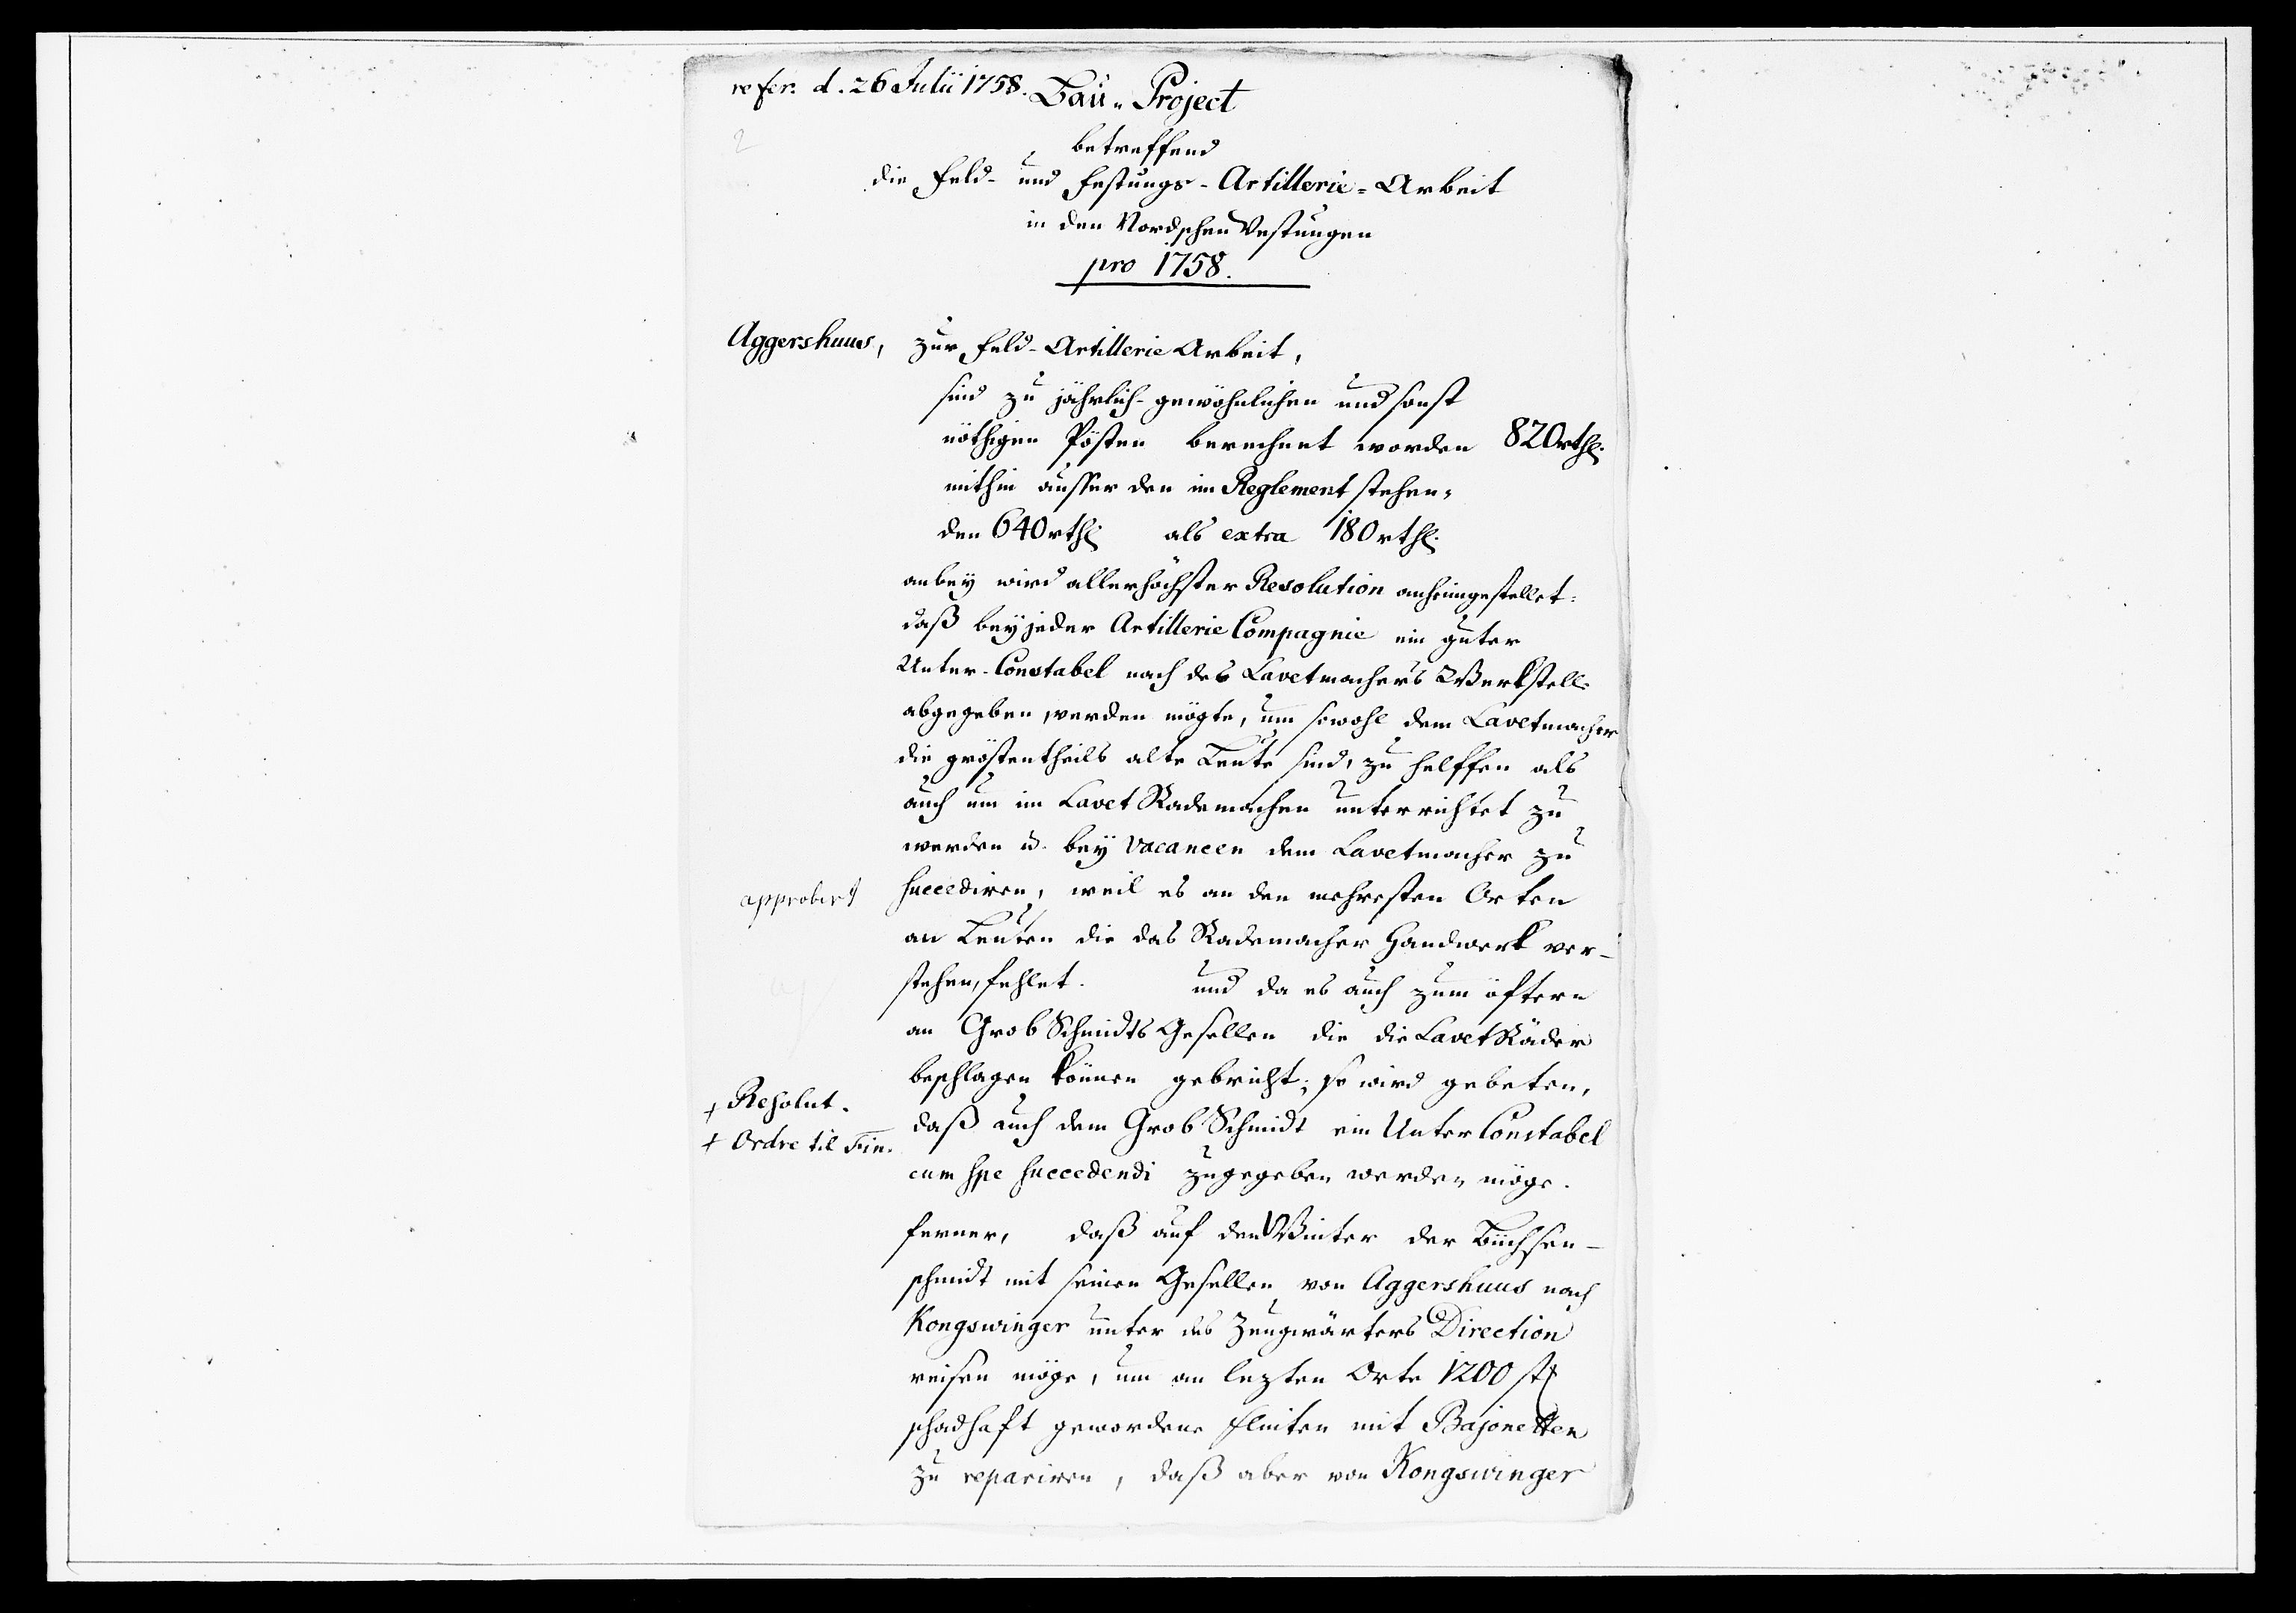 refer. d. 26 Julii 1758.
Bau-Project
2
betreffend
die Feld- und Festungs-Artillerie-Arbeit
in den Nordschen Vestungen
pro 1758.
Aggershuus, zur Feld-Artillerie Arbeit,
sind zu jährlich-gewöhnlichen und sonst
nöthigen Pösten berechnet worden 820 rthl.
mithin ausser den im Reglement stehen-
den 640 rthl. als extra 180 rthl.
anbey wird allerhöchster Resolution anheimgestellet:
daß bey jeder Artillerie Compagnie ein guter
Unter-Constabel nach des Lavetmachers Werkstell
abgegeben werden mögte, um sowohl dem Lavetmacher
die gröstentheils alte Leute sind, zu helffen als
auch um im Lavet Rademachen unterrichtet zu
werden u. bey vacancen dem Lavetmacher zu
approbirt
succediren, weil es an den mehresten Orten
an Leuten die das Rademacher Handwerk ver-
stehen, fehlet. und da es auch zum öftern
an Grob Schmidts Gesellen die die Lavet Räder
beschlagen können gebricht; so wird gebeten,
+ Resolut.
daß auch dem Grob Schmidt ein Unter Constabel
+ Ordre til Fin.
cum spe succedendi zugegeben werden möge.
ferner, daß auf den Winter der Büchsen-
schmidt mit seinen Gesellen von Aggershuus nach
Kongswinger unter des Zeugwärters Direction
reisen möge, um an lezten Orte 1200 st
schadhaft gewordene Flinten mit Bajonetten
zu repariren, daß aber von Kongswinger